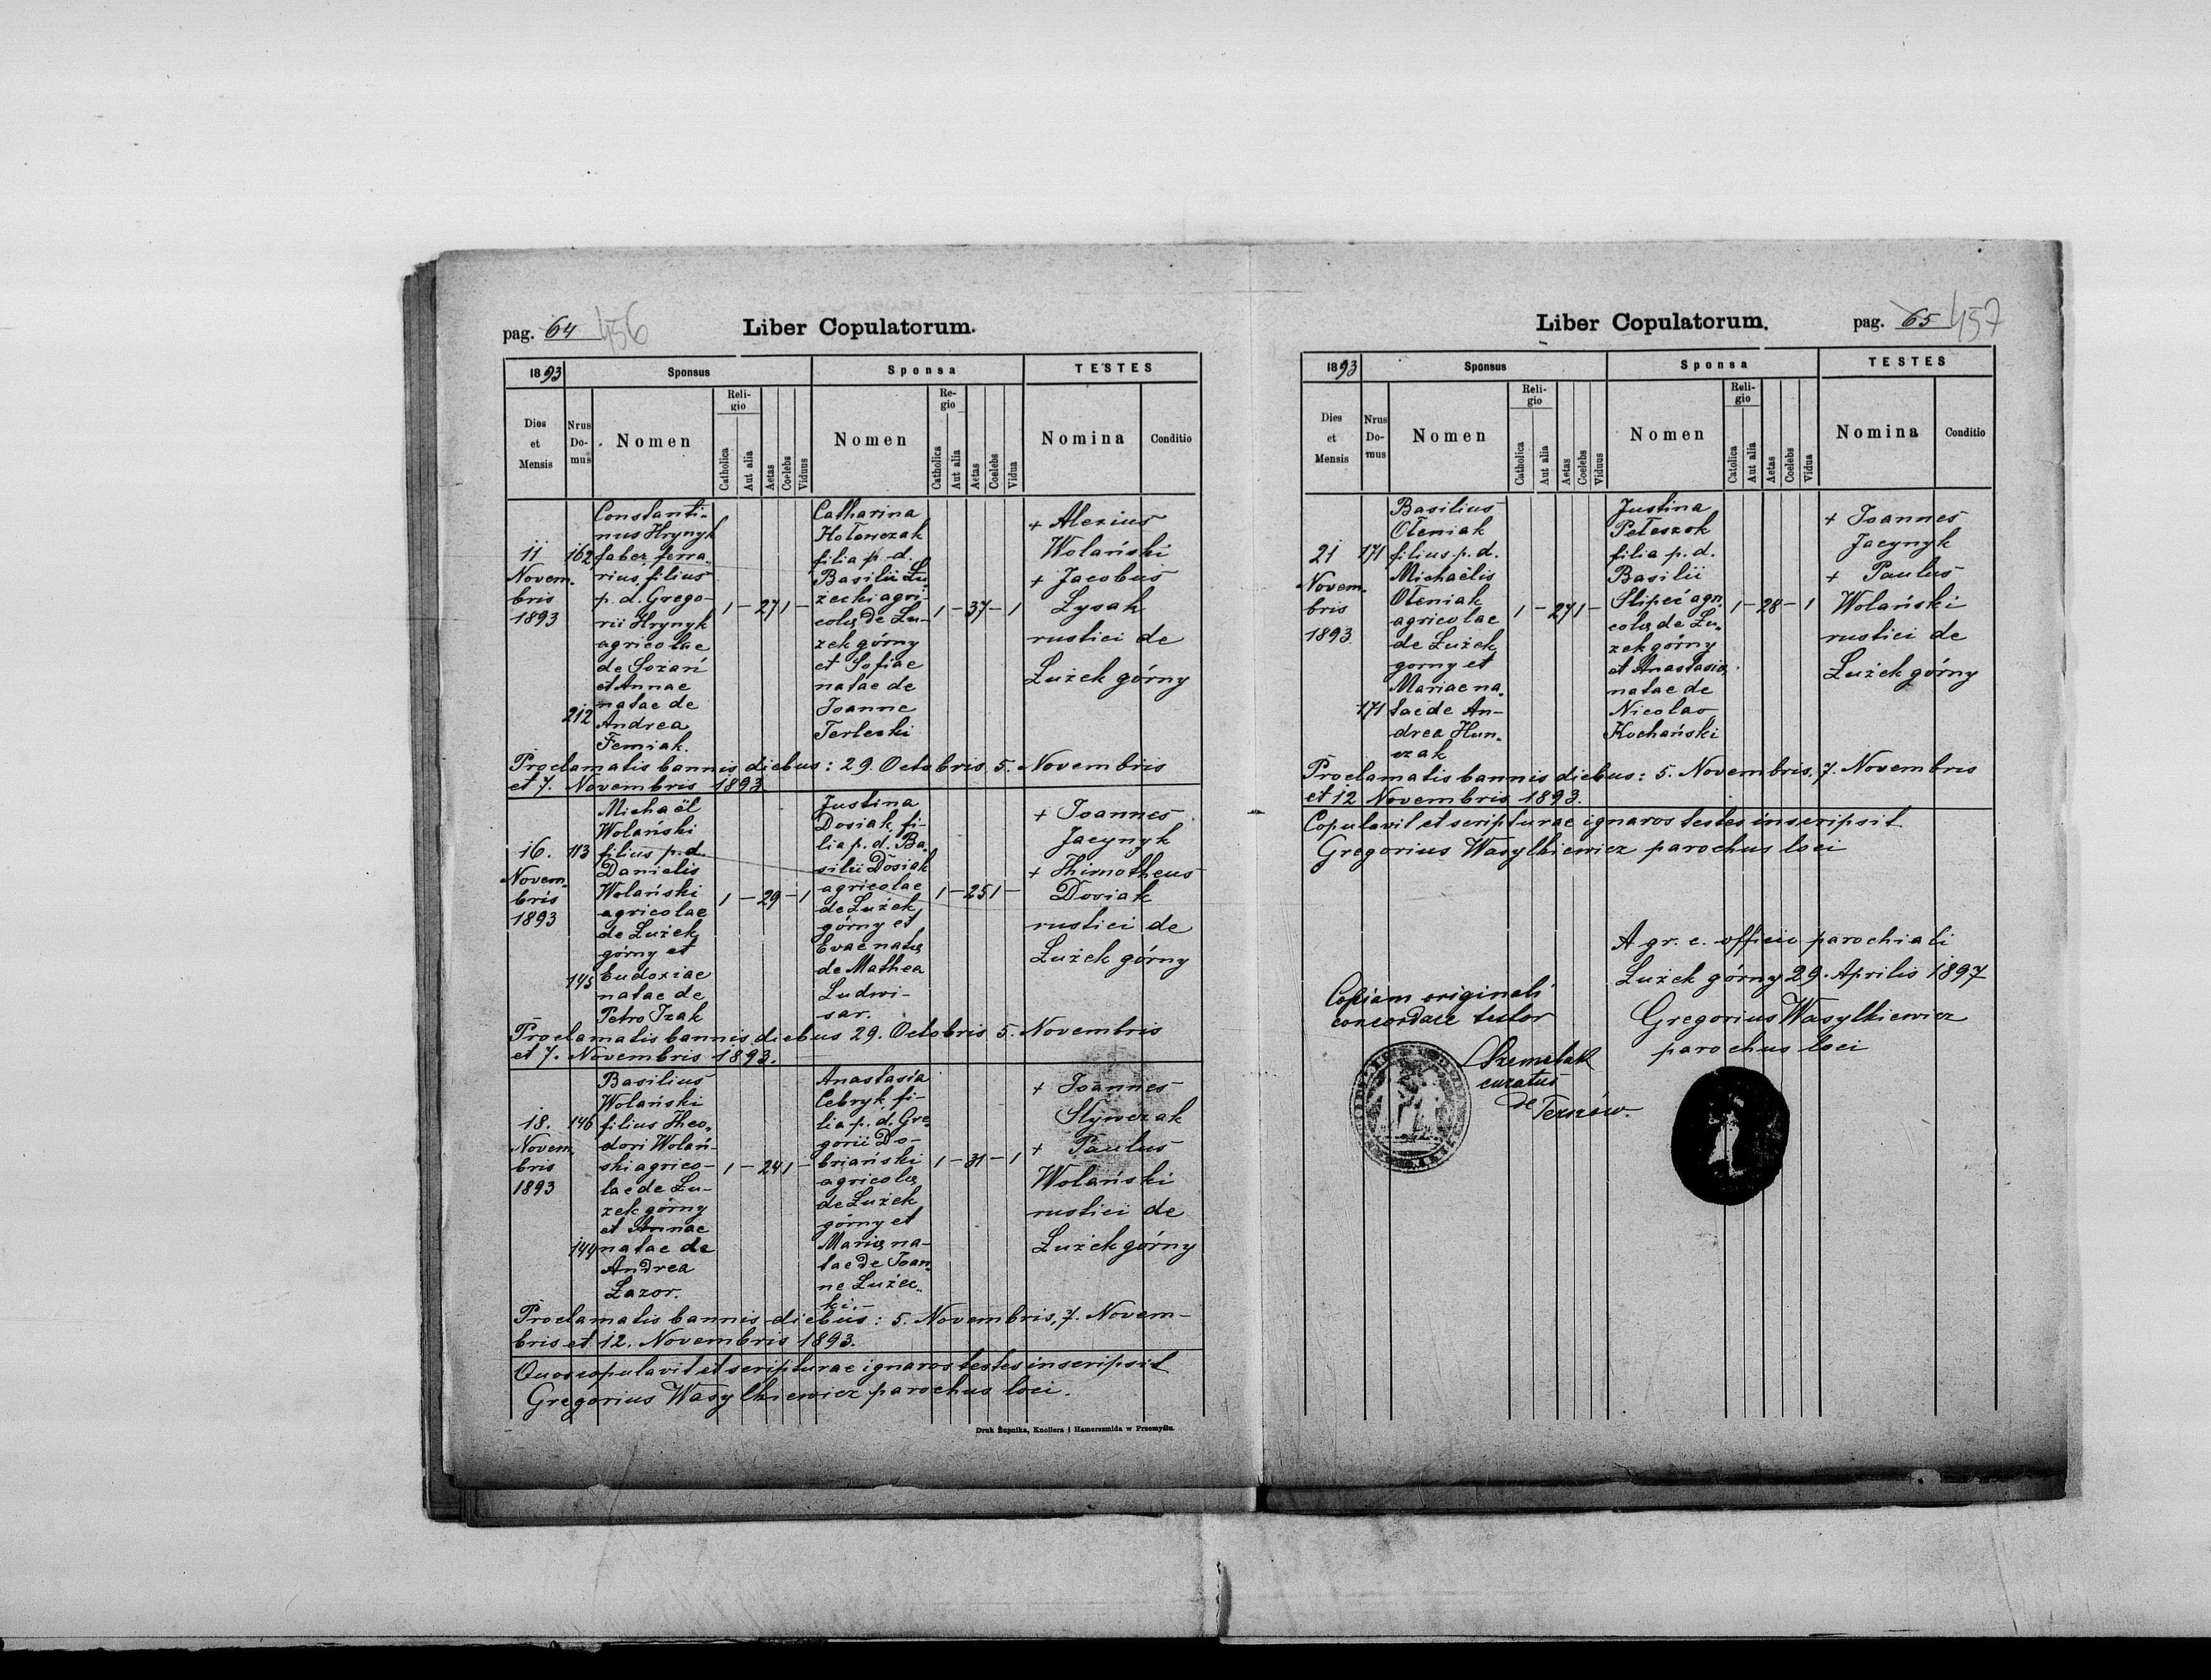 pag. 64 456
Liber Copulatorum.
1893
Sponsus
Sponsa
TESTES
Dies et Mensis
Nrus Domus
Nomen
Religio
Catholica
Aut alia
Aetas
Coelebs
Viduus
Nomen
Re-gio
Catholica
Aut alia
Aetas
Coelebs
Vidua
Nomina
Conditio
11
Novem-
bris
1893
162
212
Constanti-
nus Hrynyk
faber ferra-
rius, filius
p. d. Grego-
rii Hrynyk
agricolae
de Sozań
et Annae
natae de
Andrea
Femiak.
1 – 27 1 –
Catharina
Hołowczak
filia p. d.
Basilii Łu
żecki agri
colae de Łu-
żek górny
et Sofiae
natae de
Joanne
Terlecki
1 – 37 – 1
+ Alexius
Wolański
+ Jacobus
Łysak
rustici de
Łużek górny
Proclamatis bannis diebus: 29. Octobris 5. Novembris
et 7. Novembris 1893
16.
Novem-
bris
1893
113
145
Michaël
Wolański
filius p. d.
Danielis
Wolański
agricolae
de Łużek
górny et
Eudoxiae
natae de
Petro Izak
1 – 29 – 1
Justina
Dosiak, fi-
lia p. d. Ba-
silii Dosiak
agricolae
de Łużek
górny et
Evae natae
de Mathea
Ludwi-
sar.
1 – 25 1 –
+ Joannes
Jacynyk
+ Thimotheus
Dosiak
rustici de
Łużek górny
Proclamatis bannis diebus 29. Octobris 5. Novembris
et 7. Novembris 1893.
18.
Novem,
bris
1893
146
144
Basilius
Wolański
filius Theo-
dori Wolań-
ski agrico-
lae de Łu-
żek górny
et Annae
natae de
Andrea
Łazor.
1 – 24 1 –
Anastasia
Cebryk fi-
lia p. d. Gre-
gorii Do-
briański
agricolae
de Łużek
górny et
Mariae na-
tae de Joan-
ne Łużec-
ki. –
1 – 31 – 1
+ Joannes
Slywczak
+ Paulus
Wolański
rustici de
Łużek górny
Proclamatis bannis diebus: 5. Novembris, 7. Novem-
bris et 12. Novembris 1893.
Quos copulavit et scripturae ignaros testes inscripsit
Gregorius Wasylkiewicz parochus loci.
Druk Żupnika, Knollera i Hamerszmida w Przemyślu.
Liber Copulatorum.
pag. 65 457
1893
Sponsus
Sponsa
TESTES
Dies et Mensis
Nrus Do-mus
Nomen
Reli-gio
Catholica
Aut alia
Aetas
Coelebs
Viduus
Nomen
Reli-gio
Catolica
Aut alia
Aetas
Coelebs
Vidua
Nomina
Conditio
21
Novem.
bris
1893.
171
171
Basilius
Ołeniak
filius p. d.
Michaëlis
Ołeniak
agricolae
de Łużek
gorny et
Mariae na-
tae de An-
drea Hun-
czak
1 – 27 1 –
Justina
Pełeszok
filia p. d.
Basilii
Slipeć agri
colae de Łu-
żek górny
et Anastasiae
natae de
Nicolao
Kochański
1 – 28 – 1
+ Joannes
Jacynyk
+ Paulus
Wolański
rustici de
Łużek górny
Proclamatis bannis diebus: 5. Novembris, 7. Novembris
et 12 Novembris 1893.
Copulavit et scripturae ignaros testes inscripsit
Gregorius Wasylkiewicz parochus loci
A gr. c. officio parochiali
Łużek górny 29. Aprilis 1897
Gregorius Wasylkiewicz
parochus loci
Copiam originali
concordare testor
curatus
de Terszów.